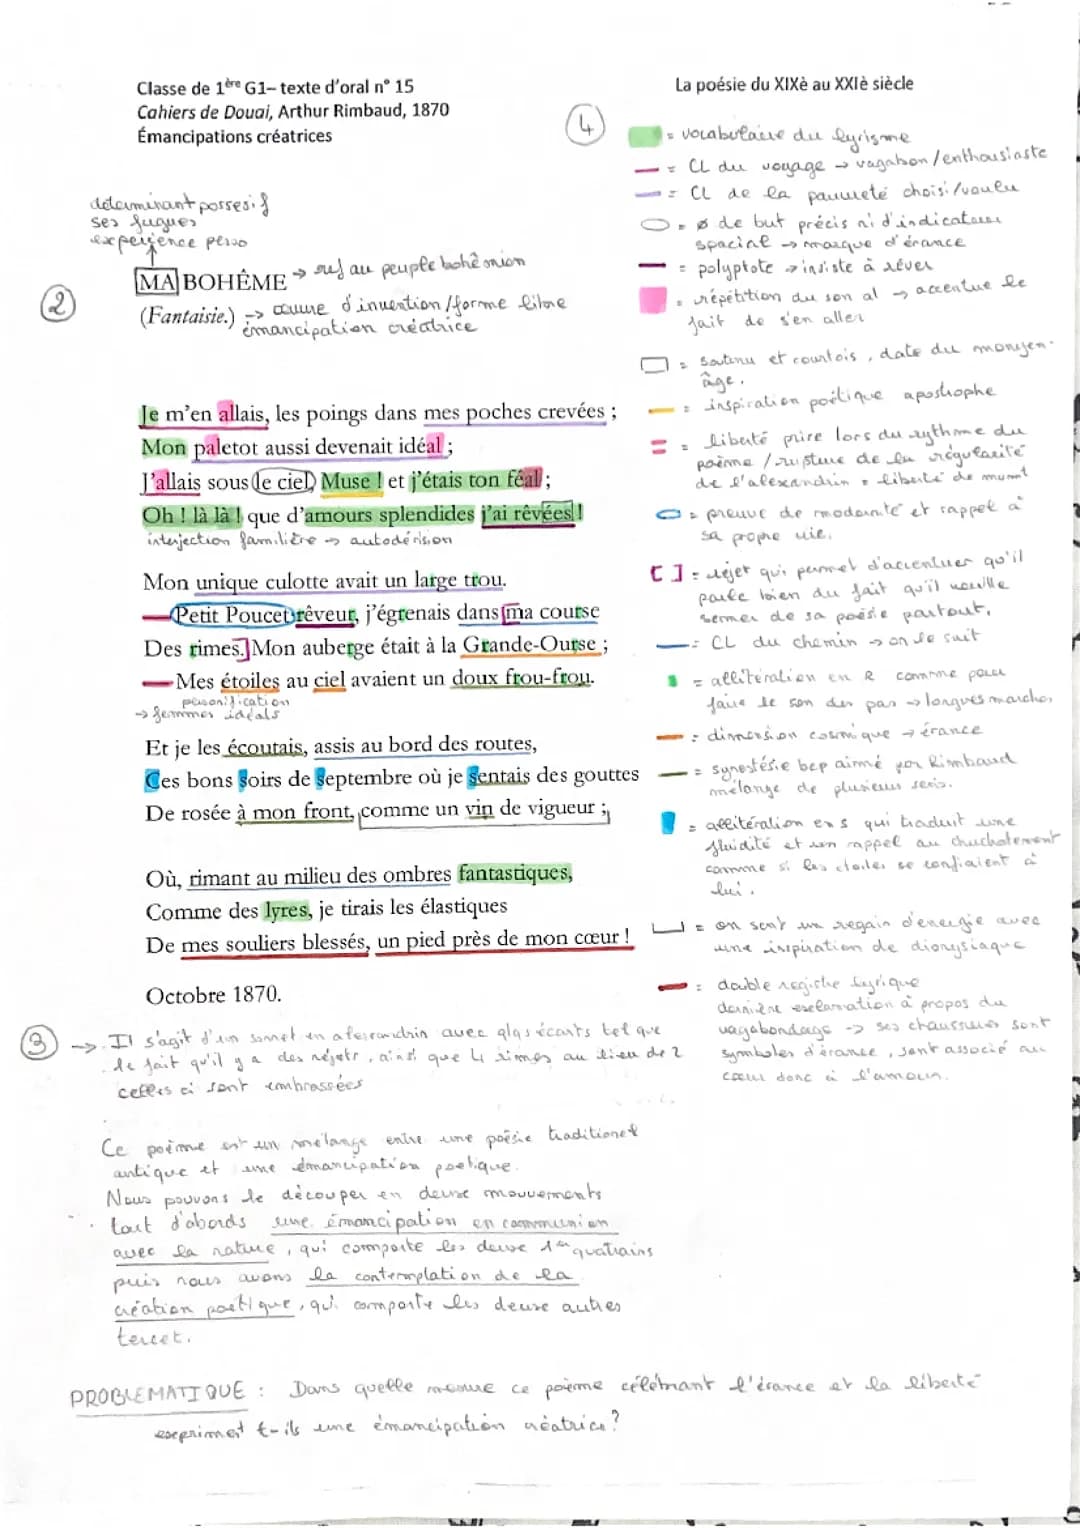 Classe de 1ère G1– texte d'oral n° 15
Cahiers de Douai, Arthur Rimbaud, 1870
Émancipations créatrices
La poésie du XIXè au XXIè siècle
déterminant possesif
ses fugues
experience perso
2
MA BOHÊME → ref au peuple bohêmien
(Fantaisie.) → œuvre d'invention/forme libre
émancipation créatrice
Je m'en allais, les poings dans mes poches crevées ;
Mon paletot aussi devenait idéal ;
J'allais sous le ciel, Muse ! et j'étais ton féal ;
Oh ! là là ! que d'amours splendides j'ai rêvées !
interjection familière → autodérision
Mon unique culotte avait un large trou.
Petit Poucet rêveur, j'égrenais dans ma course
Des rimes. Mon auberge était à la Grande-Ourse ;
Mes étoiles au ciel avaient un doux frou-frou.
personification
→ femmes idéals
Et je les écoutais, assis au bord des routes,
Ces bons soirs de septembre où je sentais des gouttes
De rosée à mon front, comme un vin de vigueur ;
Où, rimant au milieu des ombres fantastiques,
Comme des lyres, je tirais les élastiques
De mes souliers blessés, un pied près de mon cœur !
Octobre 1870.
3
→ Il s'agit d'un sonnet en alexandrin avec qlqs écarts tel que
le fait qu'il y a des rejets, ainsi que 4 rimes au lieu de 2
celles ci sont embrassées
Ce poème est un mélange entre une poésie traditionel
antique et une émancipation poetique.
Nous pouvons le découper en deux mouvements
tout d'abords une émancipation en communion
avec la nature, qui comporte les deux 1er quatrains
puis nous avons la contemplation de la
création poétique, qui comporte les deux autres
tercet.
PROBLEMATIQUE : Dans quelle mesure ce poème célébrant l'érance et la liberté
expriment t-ils une émancipation créatrice?
4
= vocabulaire du lyrisme
= CL du voyage → vagabon/enthousiaste
= CL de la pauvreté choisi/voulu
= ø de but précis ni d'indicateur
spacial → marque d'érance
= polyptote → insiste à rêver
= répétition du son al → accentue le
fait de s'en aller
= soutenu et courtois, date du moyen-
âge.
= inspiration poétique apostrophe
= liberté prise lors du rythme du
poème / rupture de la régularité
de l'alexandrin = liberté de
= preuve de modernité et rappel à
sa propre vie.
[ ] = rejet qui permet d'accentuer qu'il
parle bien du fait qu'il veuille
semer de sa poésie partout.
= CL du chemin → on le suit
= allitération en R comme pour
faire le son des pas → longues marches
= dimension cosmique → érance
= synestésie bcp aimé par Rimbaud
mélange de plusieurs sens.
= allitération en s qui traduit une
fluidité et un rappel au chuchotement
comme si les étoiles se confiaient à
lui.
= on sent un regain d'energie avec
une inspiration de dionysiaque
= double registre lyrique
dernière exclamation à propos du
vagabondage → ses chaussures sont
symboles d'érance, sont associé au
cœur donc à l'amour.